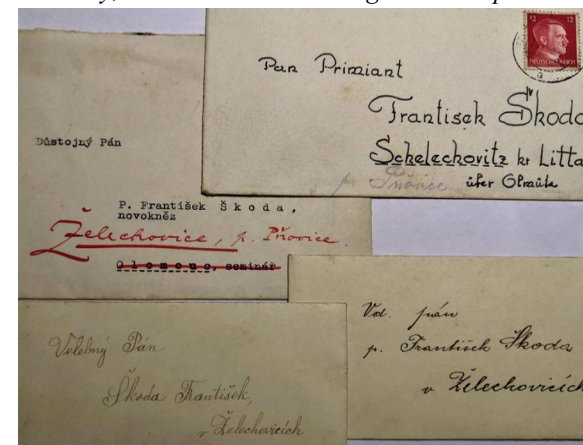 12 12
DEUTSCHES REICH
Pan Primiant
František Škoda
Schelechovitz kr Litta
p. Pňovice über Olmütz
Důstojný Pán
P. František Škoda,
novokněz
Želechovice, p. Pňovice.
Olomouc, seminář
Vd. pán
p. František Škoda
v Želechovicích
Velebný Pán
Škoda František,
v Želechovicích